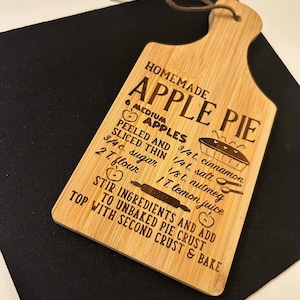 HOMEMADE
APPLE PIE
6 MEDIUM
APPLES
PEELED AND
SLICED THIN
3/4 c. sugar
2 T flour
3/4 t. cinnamon
1/4 t. salt
1/8 t. nutmeg
1 T lemon juice
STIR INGREDIENTS AND ADD
TO UNBAKED PIE CRUST
TOP WITH SECOND CRUST & BAKE